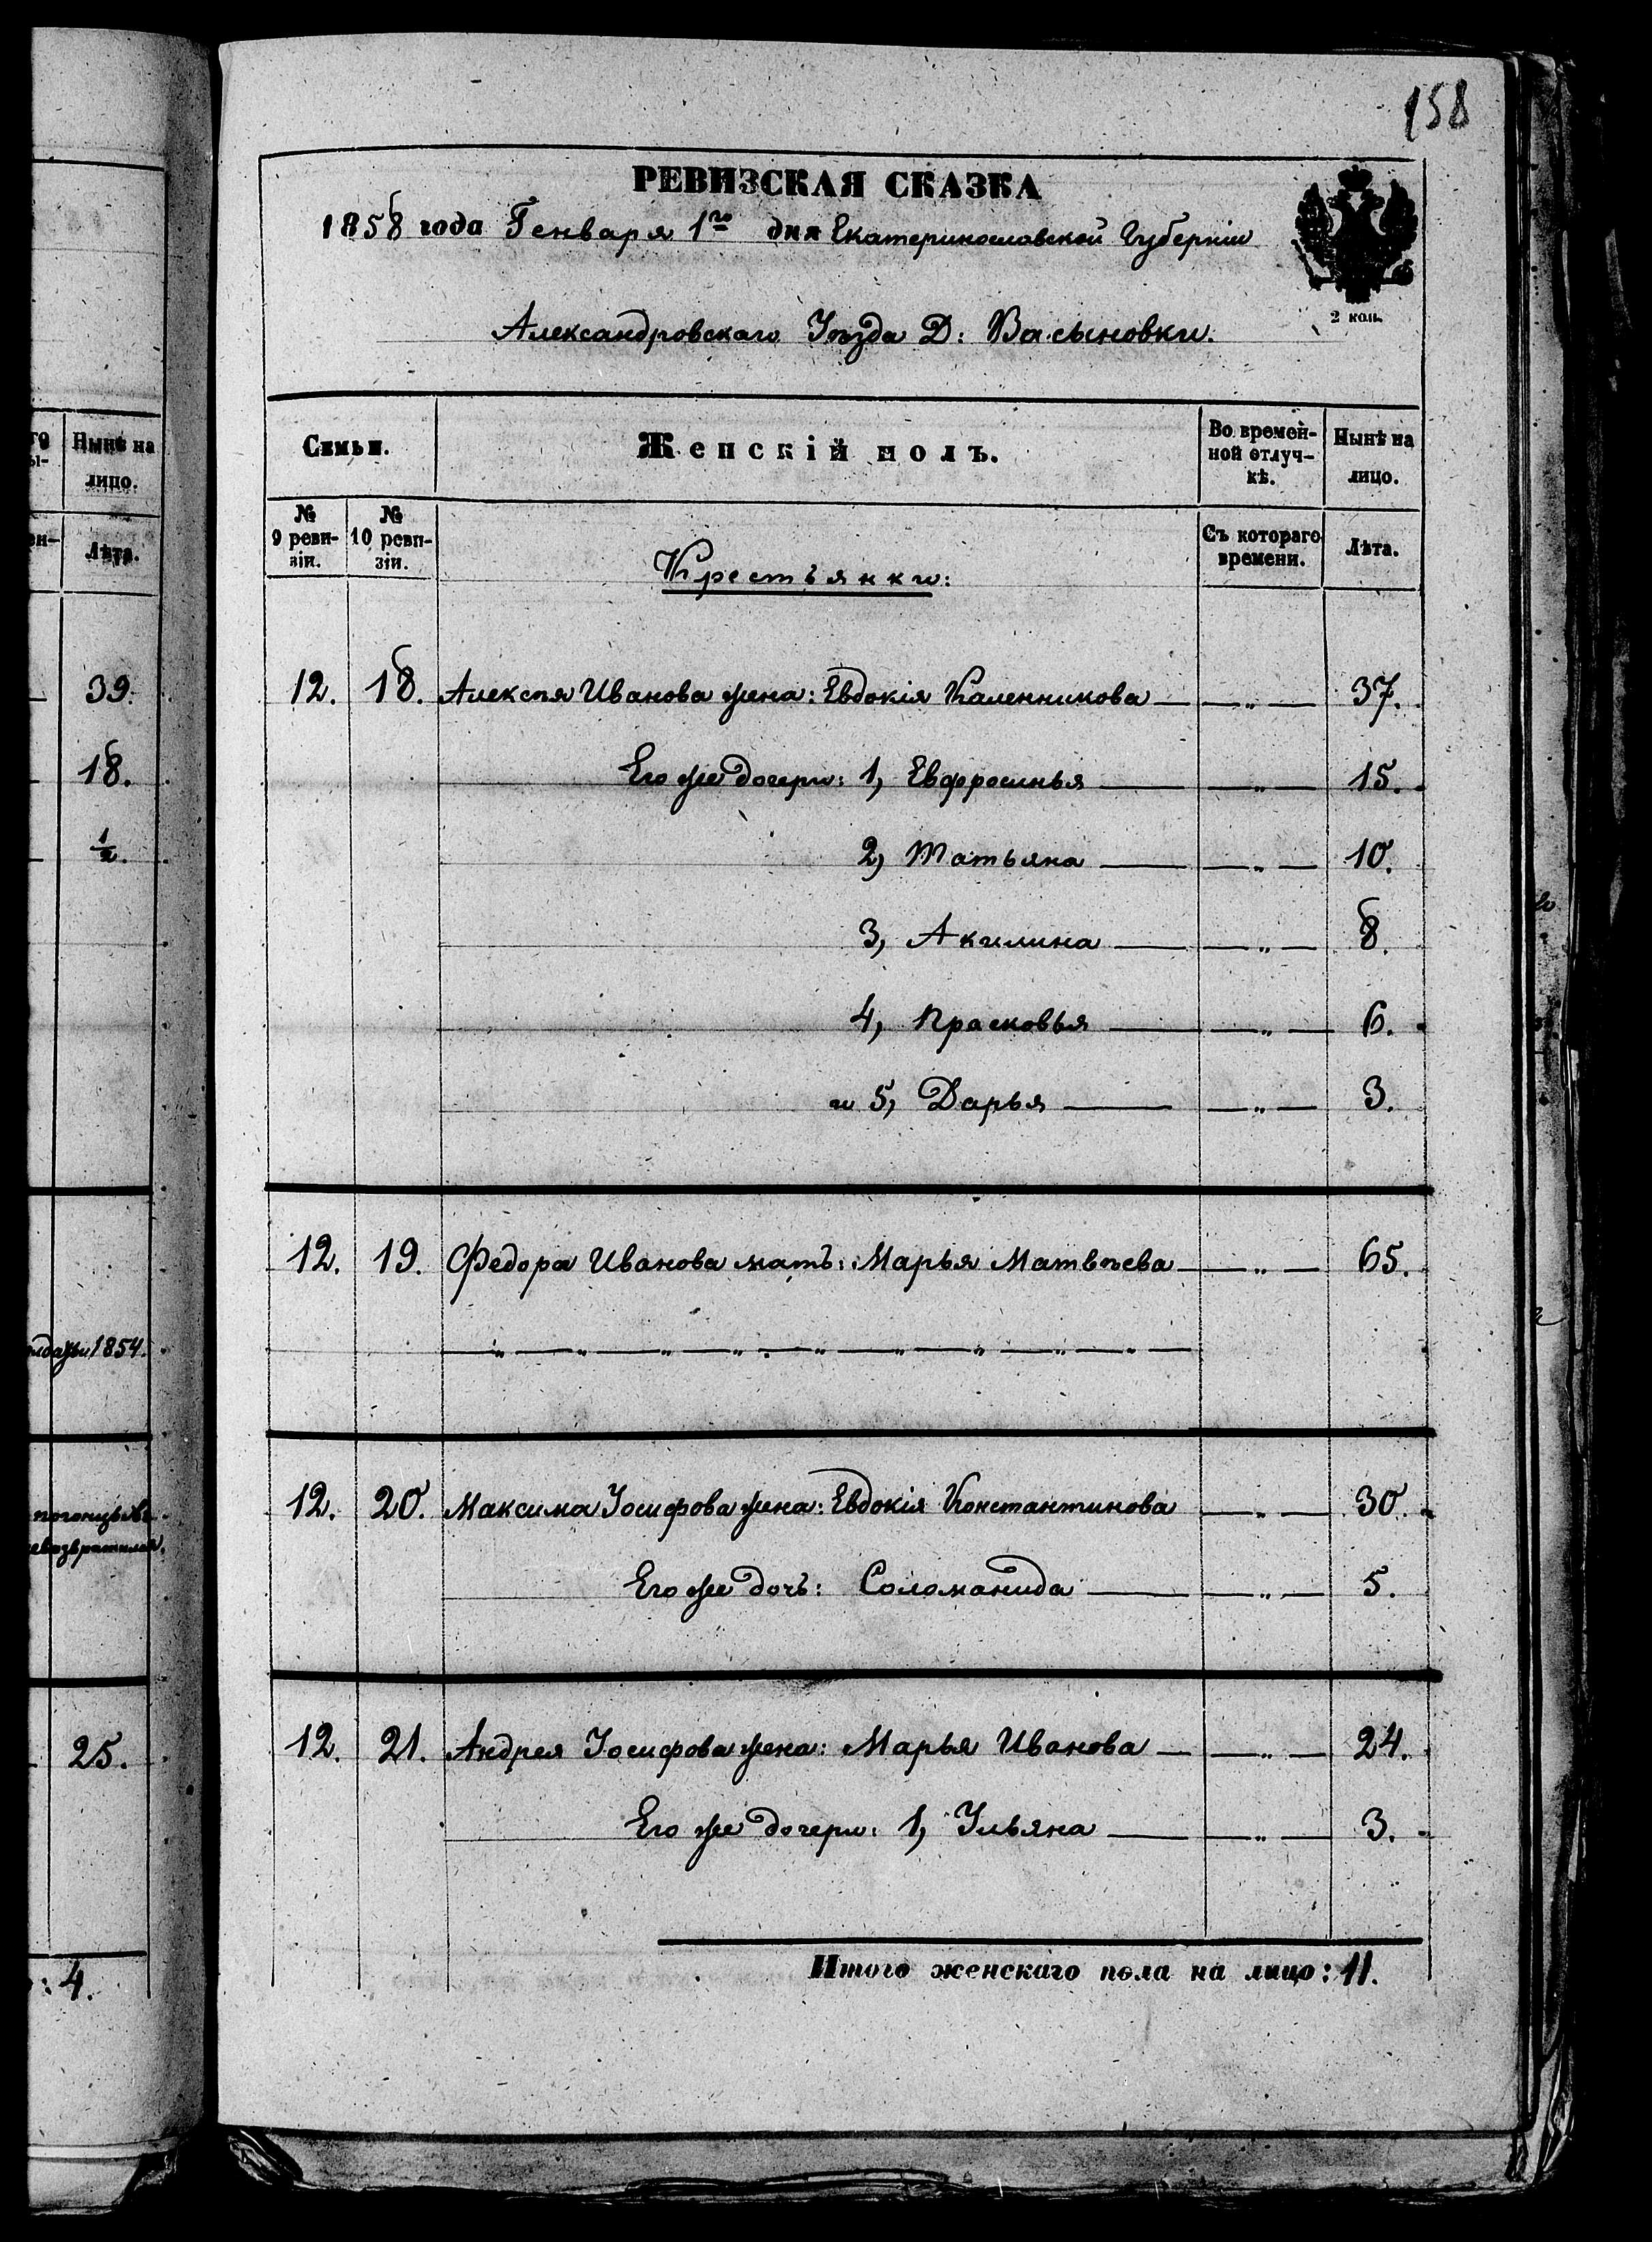 158
РЕВИЗСКАЯ СКАЗКА
1858 года Генваря 1го дня Екатеринославской Губерніи
2 коп.
Александровскаго Уѣзда Д: Васыновки.
Семьи.
Женскій полъ.
Во времен-
ной отлуч-
кѣ.
Нынѣ на
лицо.
№
9 реви-
зіи.
№
10 реви-
зіи.
Крестьянки:
Съ котораго
времени.
Лѣта.
12. 18. Алексѣя Иванова жена: Евдокія Каленникова — „ — 37.
Его же дочери: 1, Евфросинья — „ — 15.
2, Татьяна — „ — 10.
3, Акилина — „ — 8.
4, Прасковья — „ — 6.
и 5, Дарья — „ — 3.
12. 19. Федора Иванова мать: Марья Матвѣева — „ — 65.
— „ — „ — „ — „ — „ — „ — „ — „ — „ —
12. 20. Максима Іосифова жена: Евдокія Константинова — „ — 30.
Его же дочь: Соломанида — „ — 5.
12. 21. Андрея Іосифова жена: Марья Иванова — „ — 24.
Его же дочери: 1, Ульяна — „ — 3.
Итого женскаго пола на лицо: 11.
Нынѣ на
лицо.
Лѣта.
39.
18.
½.
1854.
25.
: 4.